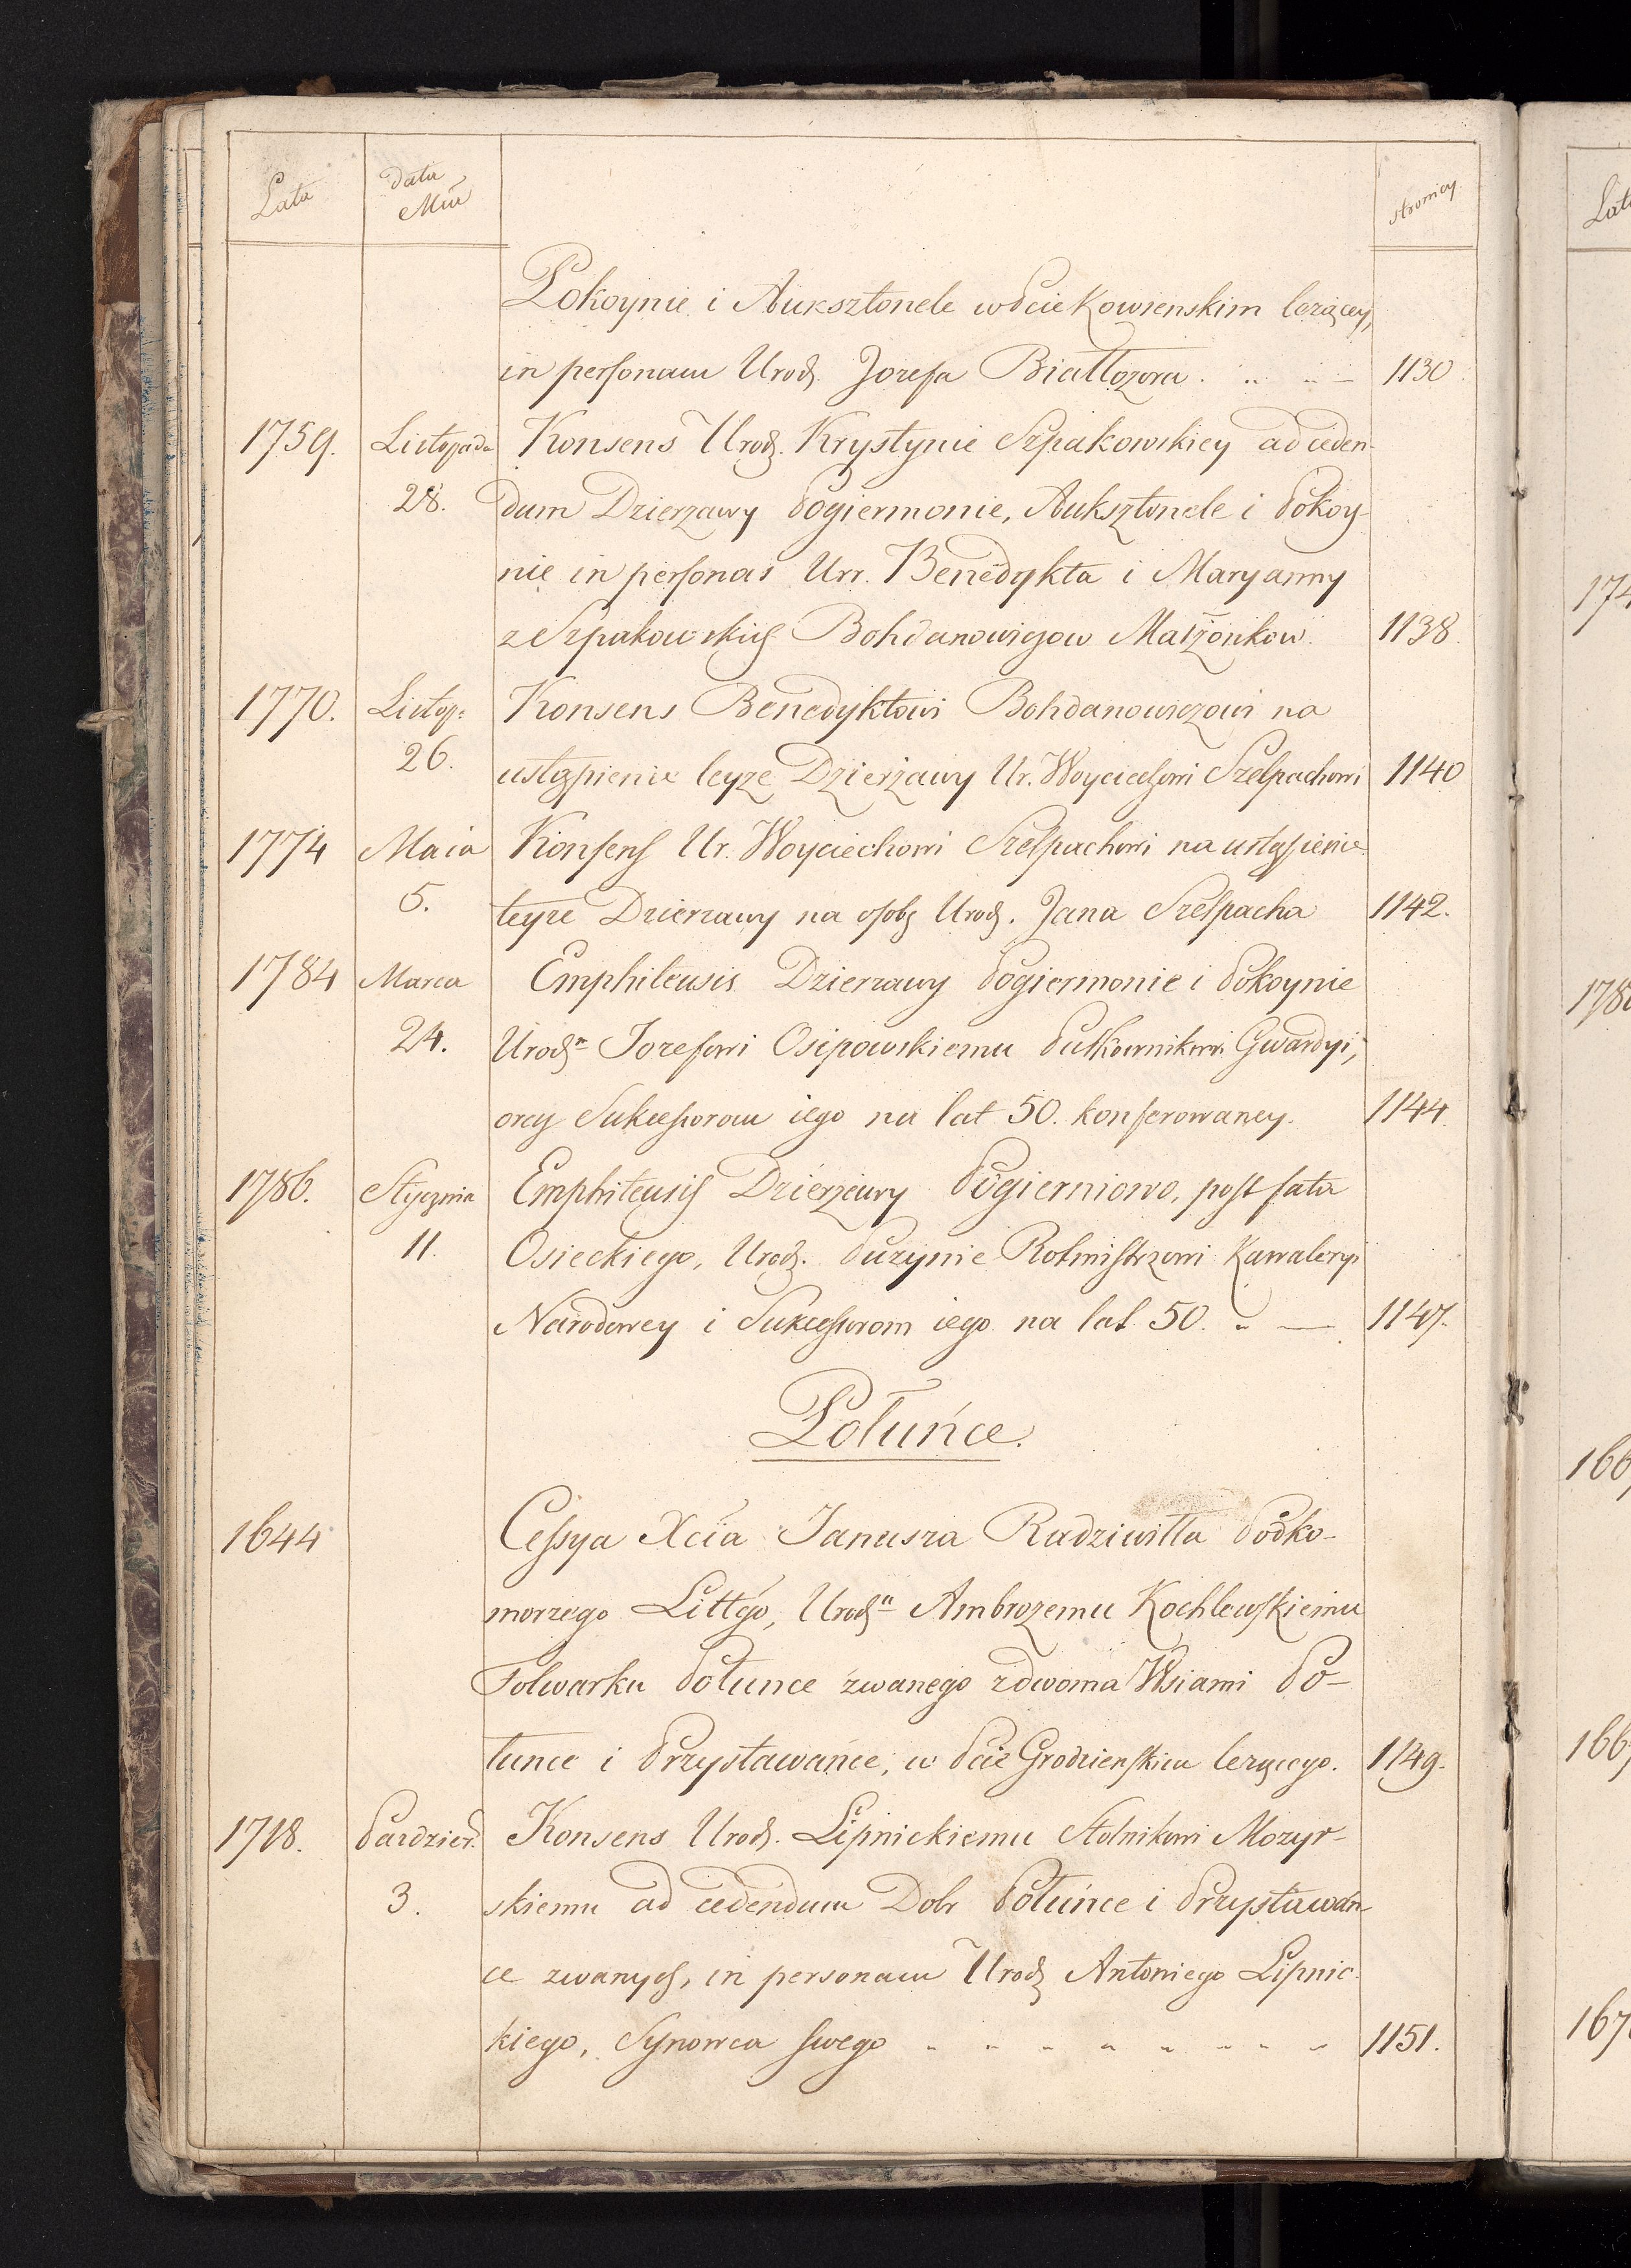 Lata data Mca stronicy
Pokoynie i Auksztonele w Pcie Kowienskim leżącey,
in personam Urodz. Jozefa Białłozora. 1130
1759. Listopada Konsens Urodz. Krystynie Szpakowskiey ad ceden-
28. dum Dzierzawy Pogiermonie, Auksztonele i Pokoy-
nie in personas Urr. Benedykta i Maryanny
z Szpakowskich Bohdanowiczow Małżonkow. 1138.
1770. Listop: Konsens Benedyktowi Bohdanowiczowi na
26. ustąpienie teyze Dzierżawy Ur. Woyciechowi Szelpachowi 1140
1774 Maia Konsens Ur. Woyciechowi Szelpachowi na ustąpienie
5. teyze Dzierzawy na osobę Urodz. Jana Szelpacha 1142.
1784 Marca Emphiteusis Dzierzawy Pogiermonie i Pokoynie
24. Urodz. Jozefowi Osipowskiemu Pułkownikowi Gwardyi,
oraz Sukcessorom iego na lat 50. konferowaney. 1144.
1786. Stycznia Emphiteusis Dzierżawy Pogierniowo, post fata
11. Osieckiego, Urodz. Puzynie Rotmistrzowi Kawaleryi
Narodowey i Sukcessorom iego na lat 50. 1147.
Połuńce.
1644 Cessya Xcia Janusza Radziwiłła Podko-
morzego Littgo, Urodz. Ambrożemu Kochlewskiemu
Folwarku Połunce zwanego z dwoma Wsiami Po-
łunce i Przystawańce, w Pcie Grodzienskim leżącego. 1149.
1718. Pazdzier. Konsens Urodz. Lipnickiemu Stolnikowi Mozyr-
3. skiemu ad cedendum Dobr Połuńce i Przystawań-
ce zwanych, in personam Urodz Antoniego Lipnic-
kiego, Synowca swego 1151.